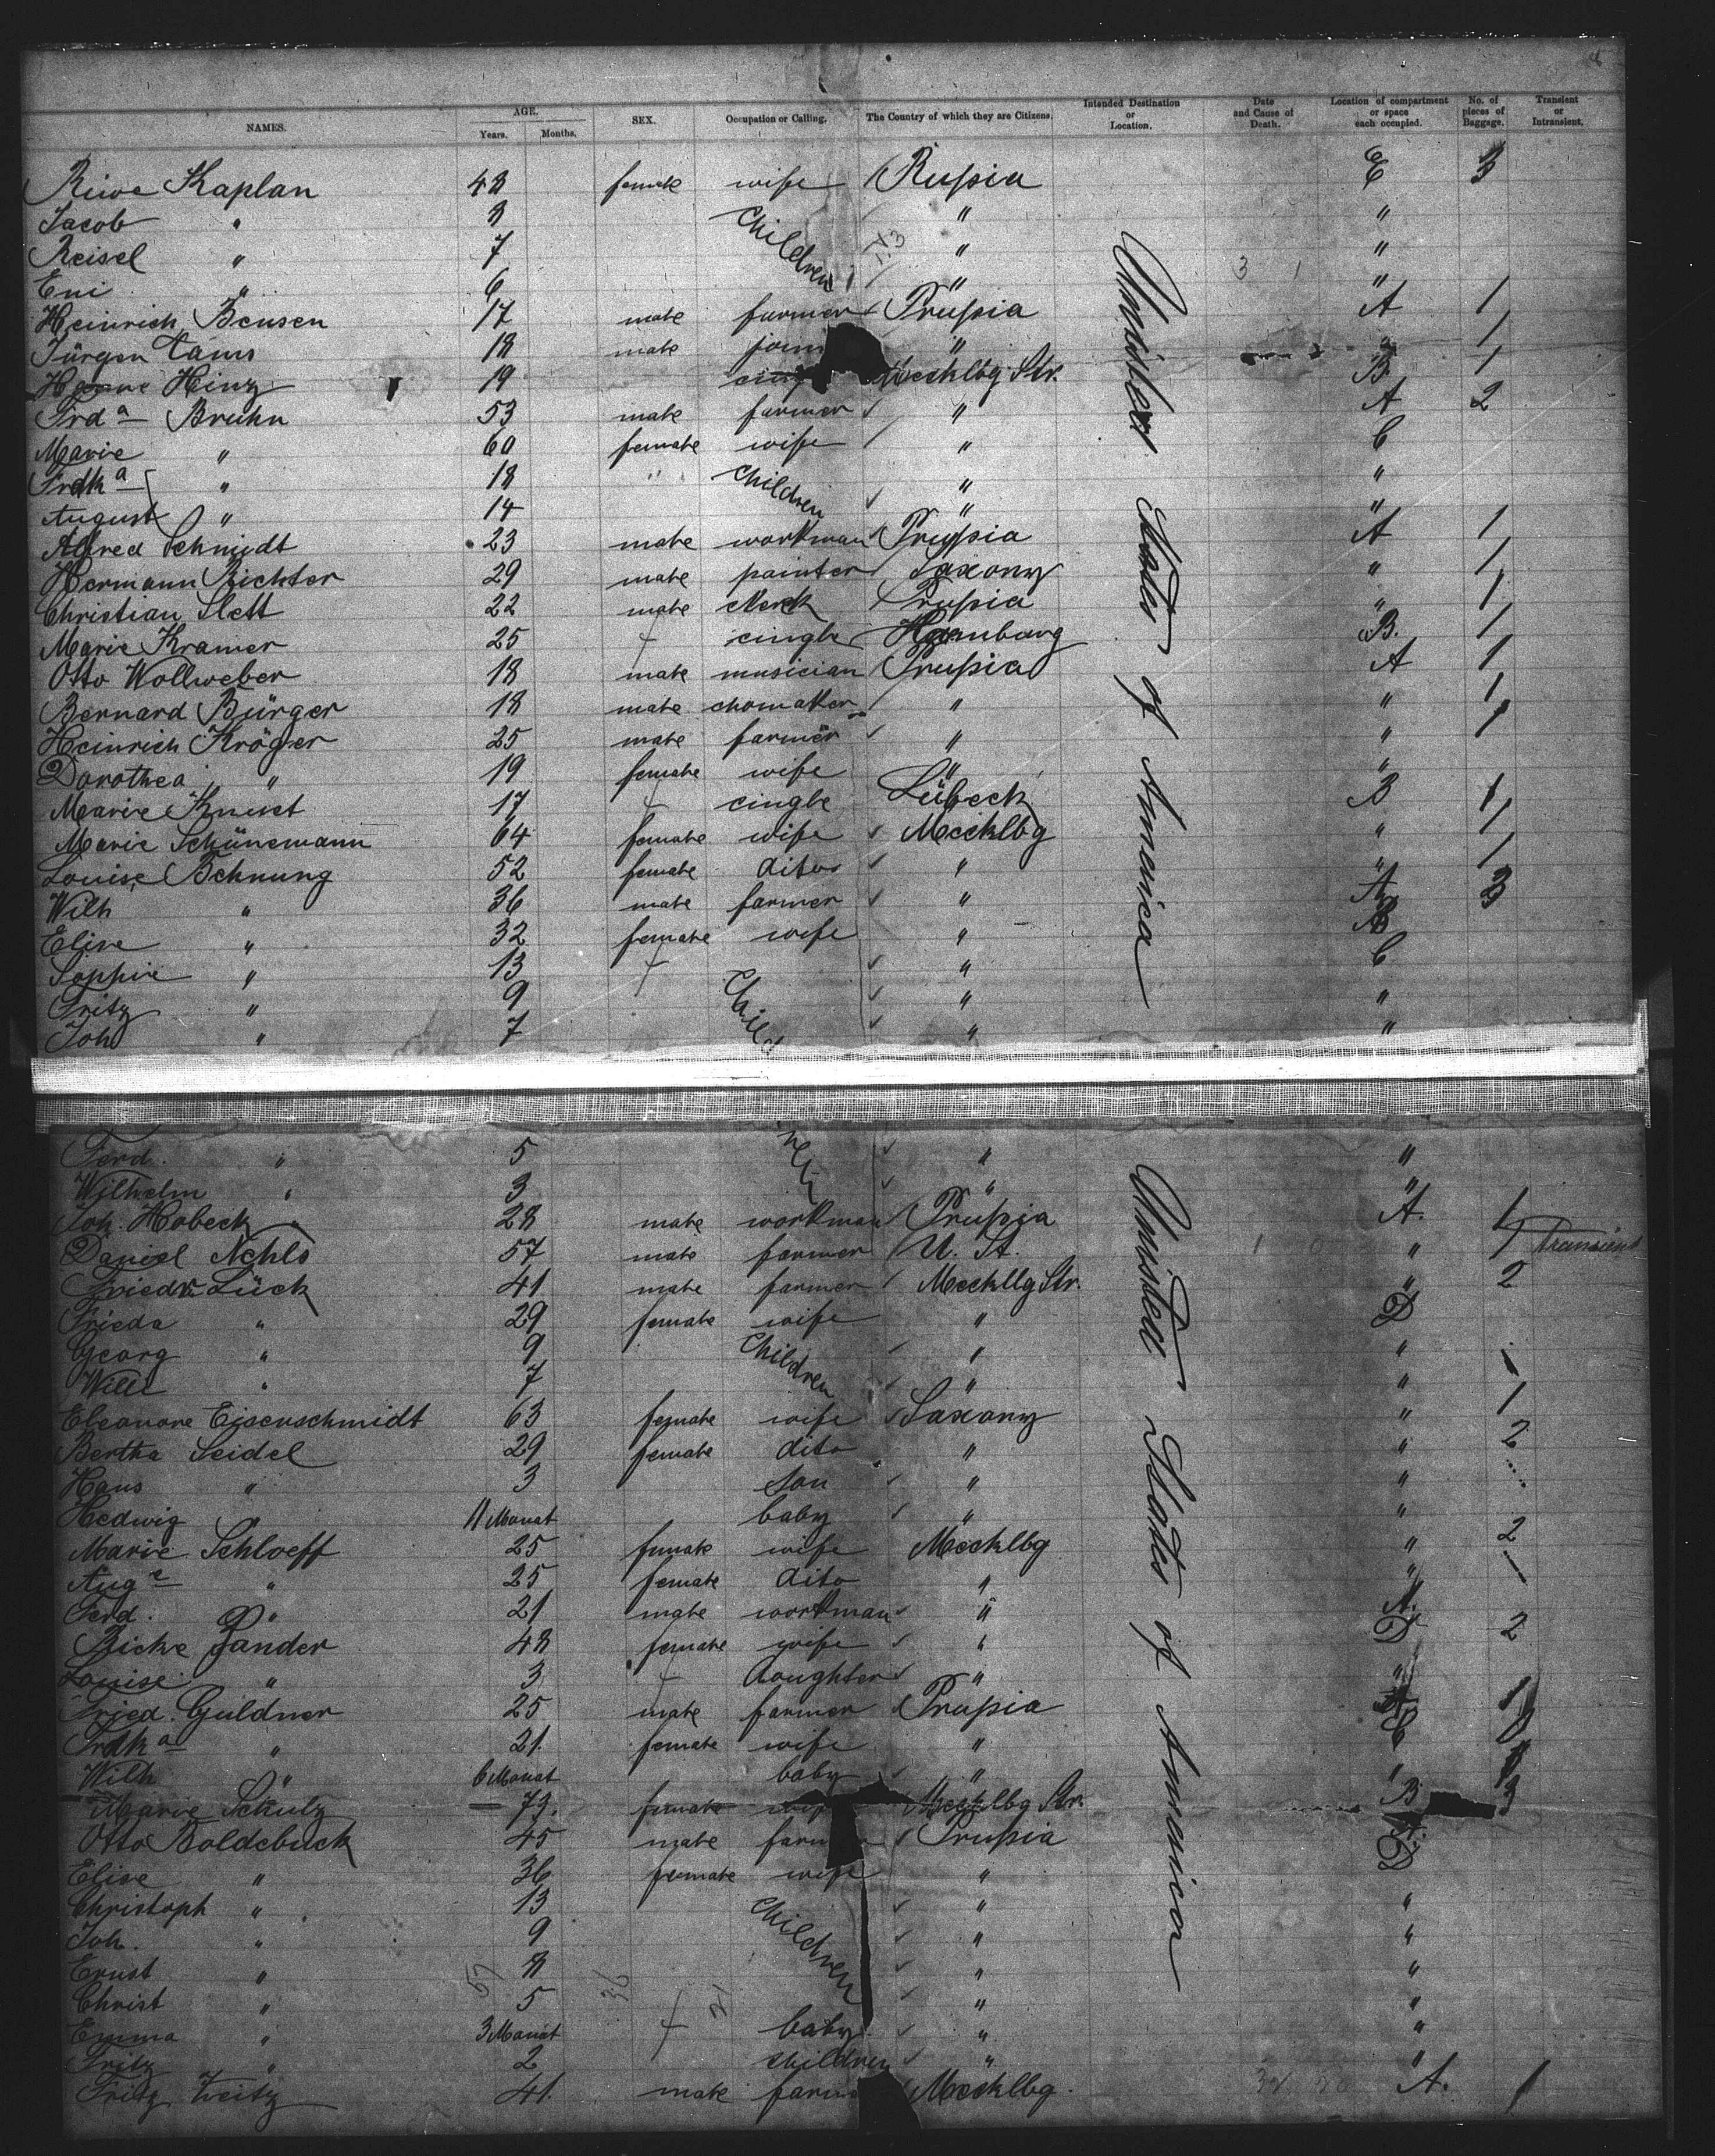 NAMES. AGE. Years. Months. SEX. Occupation or Calling. The Country of which they are Citizens. Intended Destination or Location. Date and Cause of Death. Location of compartment or space each occupied. No. of pieces of Baggage. Transient or Intransient.
Riwe Kaplan 48 female wife Russia E 3
Jacob " 8 Children " "
Reisel " 7 " "
Eni " 6 " "
Heinrich Bensen 17 male farmer Prussia A 1
Jürgen Tams 18 male " " 1
Hinz 19 Mecklbg Str. B 1
Frd a Bruhn 53 male farmer " A 2
Marie " 60 female wife " C
Frdk a " 18 " Children " "
August " 14 " "
Alfred Schmidt 23 male workman Prussia A 1
Hermann Richter 29 male painter Saxony " 1
Christian Slett 22 male clerk Prussia " 1
Marie Kramer 25 cingle Hamburg B. 1
Otto Wollweber 18 male musician Prussia A 1
Bernard Bürger 18 male chomaker " " 1
Heinrich Kröger 25 male farmer " " 1
Dorothea " 19 female wife " "
Marie Knust 17 cingle Lübeck B 1
Marie Schünemann 64 female wife Mecklbg " 1
Louise Behnung 52 female ditos " " 1
Wilh " 36 male farmer " A 3
Elise " 32 female wife " B
Sophie " 13 " C
Fritz " 9 Children " "
Joh " 7 " "
United States of America
Ferd. " 5 " "
Wilhelm " 3 " "
Joh. Hobeck 28 male workman Prussia A. 1
Daniel Nehls 57 male farmer U. St. " 1 Transient
Friedr. Lück 41 male farmer Mecklbg Str. " 2
Frieda " 29 female wife " D
Georg " 9 Children " "
Willi " 7 " "
Eleonore Eisenschmidt 63 female wife Saxony " 1
Bertha Seidel 29 female dito " " 2
Hans " 3 son " "
Hedwig 11 Monat baby " "
Marie Schloeff 25 female wife Mecklbg " 2
Aug e " 25 female dito " " 1
Ferd. " 21 male workman " A.
Ricke Zander 48 female wife " D 2
Louise " 3 doughter " "
Fried. Guldner 25 male farmer Prussia A 1
Frdk a " 21. female wife " C
Wilh " 6 Monat baby " "
Marie Schulz 73. female wife Mecklbg Str. B 3
Otto Boldebuck 45 male farmer Prussia A.
Elise " 36 female wife " D
Christoph " 13 Children " "
Joh. " 9 " "
Ernst " 8 " "
Christ " 5 " "
Emma " 3 Monat baby. " "
Fritz " 2 children " "
Fritz Zeitz 41. male farmer Mecklbg. A. 1
United States of America